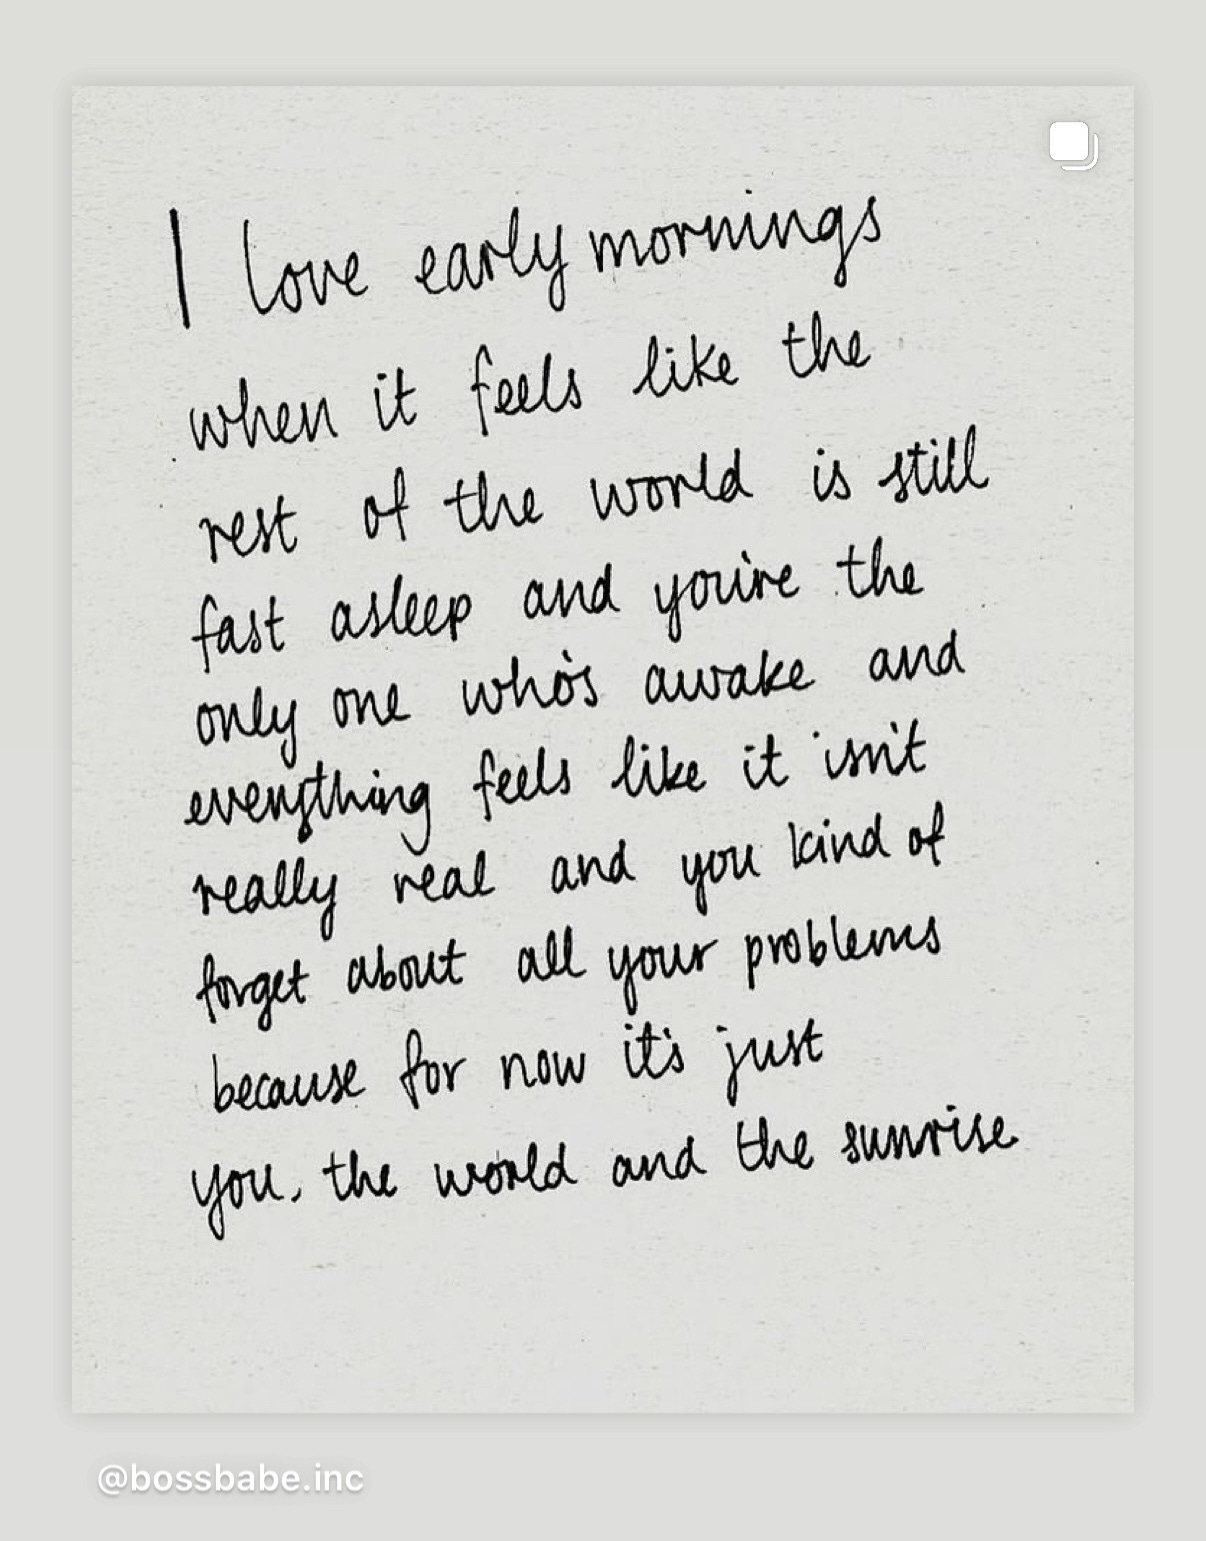 I love early mornings
when it feels like the
rest of the world is still
fast asleep and you're the
only one who's awake and
everything feels like it isn't
really real and you kind of
forget about all your problems
because for now it's just
you, the world and the sunrise
@bossbabe.inc